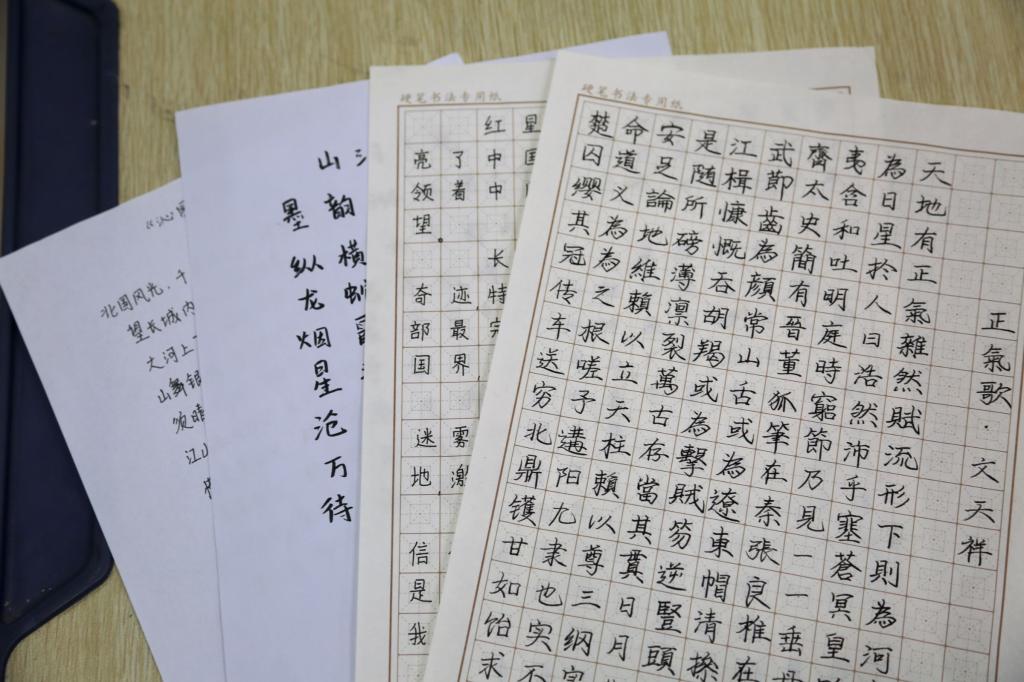 北国风光，千
望长城内
大河上
山舞银
须晴
江山
山
墨韵
纵横
龙
烟
星
沧
万
待
硬笔书法专用纸
红星
亮了中国
领着中
望。
长
奇迹，特
部最完
国界
迷雾
地，激
信
是
我
硬笔书法专用纸
正氣歌·文天祥
天地有正氣雜然賦流形下則為河
為日星扵人曰浩然沛乎塞蒼冥皇
夷含和吐明庭時窮節乃見一一垂丹
齊太史簡有晉董狐筆在秦張良椎在
武節齒為顏常山舌或為遼東帽清操
江楫慷慨吞胡羯或為擊賊笏逆豎頭
是隨所磅薄凛裂萬古存當其貫日月
安足論地維賴以立天柱賴以尊三纲
命道义為為之根嗟予遘阳九隶也实不
楚囚缨其冠传车送穷北鼎镬甘如饴求